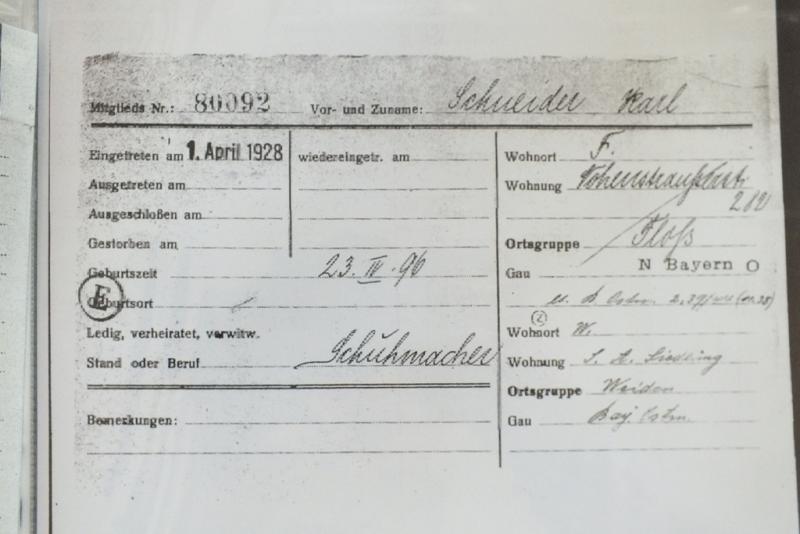 Mitglieds Nr.: 80092 Vor- und Zuname: Schneider Karl
Eingetreten am 1. April 1928 wiedereingetr. am
Ausgetreten am
Ausgeschloßen am
Gestorben am
Geburtszeit 23. IV. 96
E
Geburtsort
Ledig, verheiratet, verwitw.
Stand oder Beruf Schuhmacher
Bemerkungen:
Wohnort F.
Wohnung
212
Ortsgruppe Floß
Gau N Bayern O
Wohnort W.
Wohnung S. A. Siedlung
Ortsgruppe Weiden
Gau Bay. Ostm.